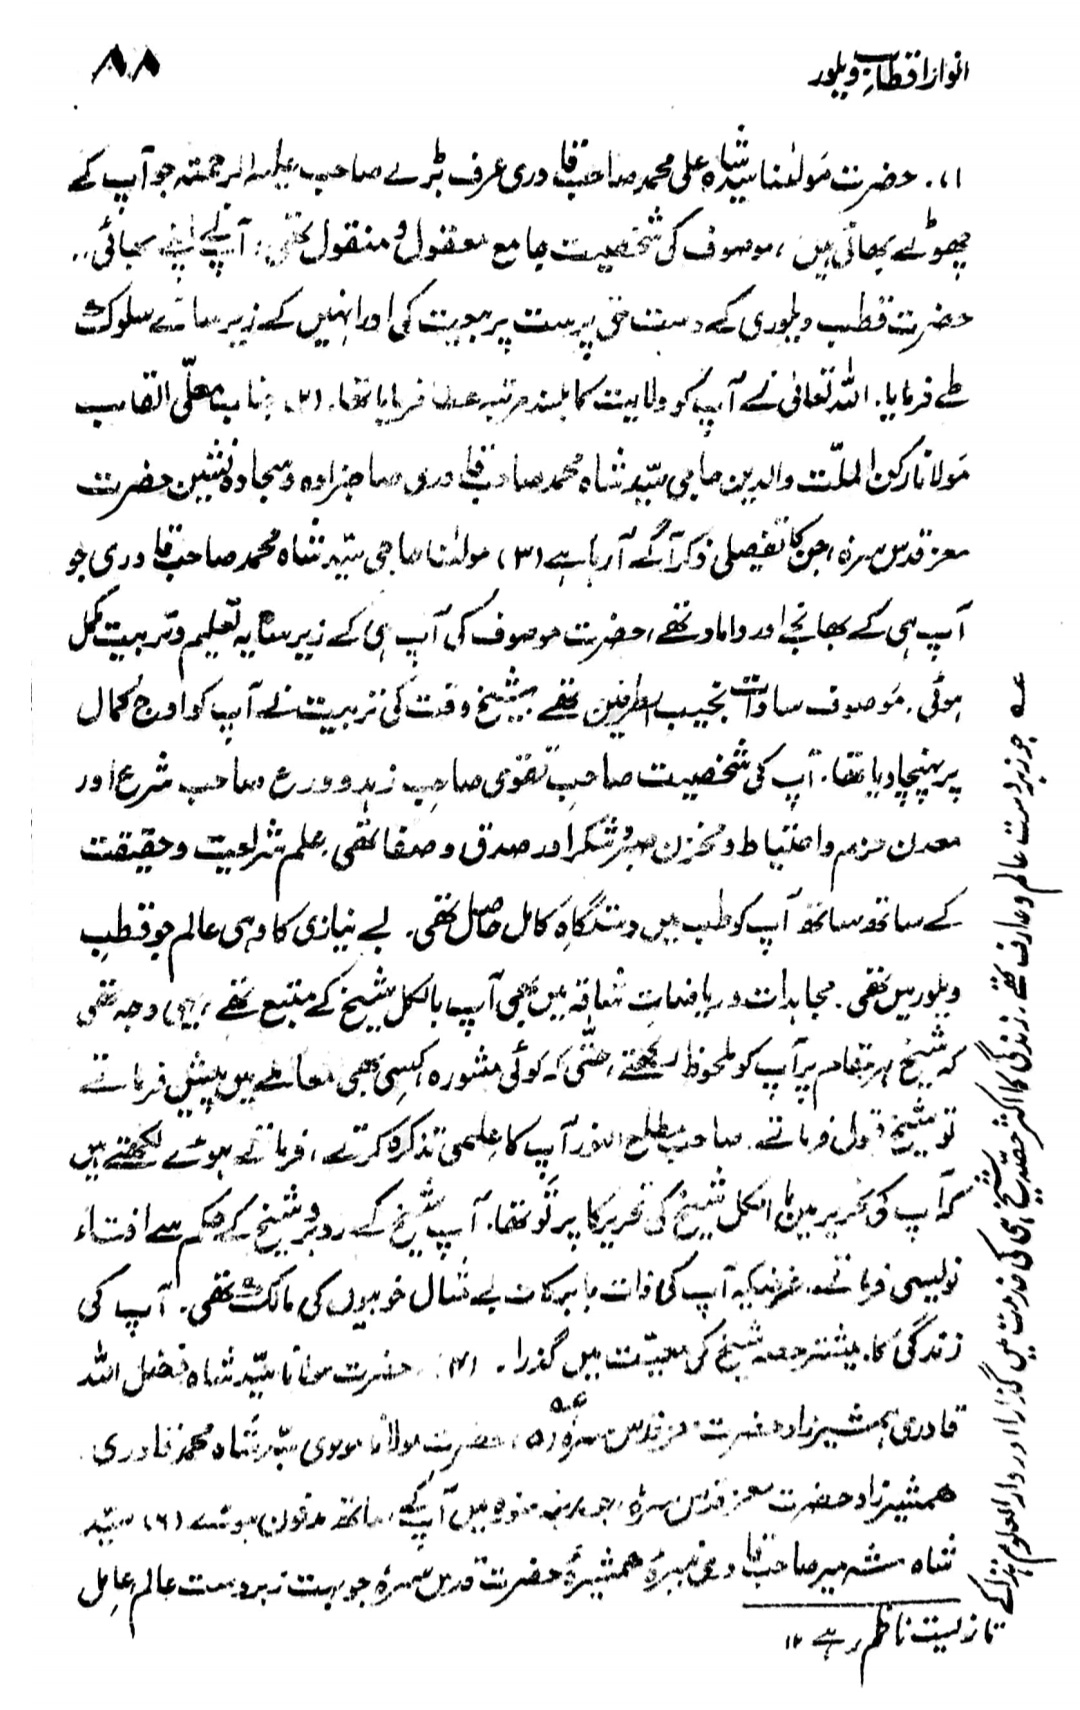 انوار اقطاب ویلور
۸۸
(۱) حضرت مولٰنا سید شاہ علی محمد صاحب قادری عرف بڑے صاحب علیہ الرحمتہ جو آپ کے
چھوٹے بھائی ہیں، موصوف کی شخصیت جامع معقول و منقول تھی، آپ نے اپنے بھائی..
حضرت قطب ویلوری کے دست حق پرست پر بیعت کی اور انہیں کے زیر سائے سلوک
طے فرمایا۔ اللہ تعالیٰ نے آپ کو ولایت کا بلند مرتبہ عطا فرمایا تھا۔ (۲) جناب معلّی القاب
مولانا رکن الملّت والدین حاجی سیّد شاہ محمد صاحب قادری صاحبزادہ و سجادہ نشین حضرت
معز قدس سرہ، جن کا تفصیلی ذکر آگے آرہا ہے (۳) مولٰنا حاجی سیّد شاہ محمد صاحب قادری جو
آپ ہی کے بھانجے اور داماد تھے، حضرت موصوف کی آپ ہی کے زیر سایہ تعلیم و تربیت مکمل
ہوئی۔ موصوف سادات نجیب الطرفین تھے شیخ وقت کی تربیت نے آپ کو اوج کمال
پر پہنچا دیا تھا۔ آپ کی شخصیت صاحب تقویٰ صاحب زہد و ورع صاحب شرع اور
معدن حزم و احتیاط و مخزن صبر و شکر اور صدق و صفا تھی علم شریعت و حقیقت
کے ساتھ ساتھ آپ کو طب میں دستگاہِ کامل حاصل تھی۔ بے نیازی کا وہی عالم جو قطب
ویلور میں تھی۔ مجاہدات و ریاضات شاقہ میں بھی آپ بالکل شیخ کے متبع تھے، یہی وجہ تھی
کہ شیخ ہر مقام پر آپ کو ملحوظ رکھتے، حتّٰی کہ کوئی مشورہ کسی بھی معاملے میں پیش فرماتے
تو شیخ قبول فرماتے۔ صاحب مطلع النور آپ کا علمی تذکرہ کرتے، فرماتے ہوئے لکھتے ہیں
کہ آپ کی تحریر میں بالکل شیخ کی تحریر کا پرتو تھا۔ آپ شیخ کے روبرو شیخ کے حکم سے افتاء
نویسی فرماتے۔ غرضیکہ آپ کی ذات بابرکات بے مثال خوبیوں کی مالک تھی۔ آپ کی
زندگی کا بیشتر حصہ شیخ کی معیّت میں گذرا۔ (۴) حضرت مولانا سیّد شاہ فضل اللہ
قادری ہمشیرزاد حضرت معز قدس سرہٗ عہ (۵) حضرت مولانا مولوی سیّد شاہ محمد قادری۔
ہمشیرزاد حضرت معز قدس سرہٗ، جو مدینہ منورہ میں آپ کے ساتھ مدفون ہوئے (۶) سیّد
شاہ شہمیر صاحب قادری نبیرۂ ہمشیرۂ حضرت قدس سرہٗ جو بہت زبردست عالم عامل
عہ جو زبردست عالم و عارف تھے، زندگی کا اکثر حصّہ شیخ ہی کی خدمت میں گذارا اور دار العلوم ہٰذا کے
تا زلیست ناظم رہے ۱۲